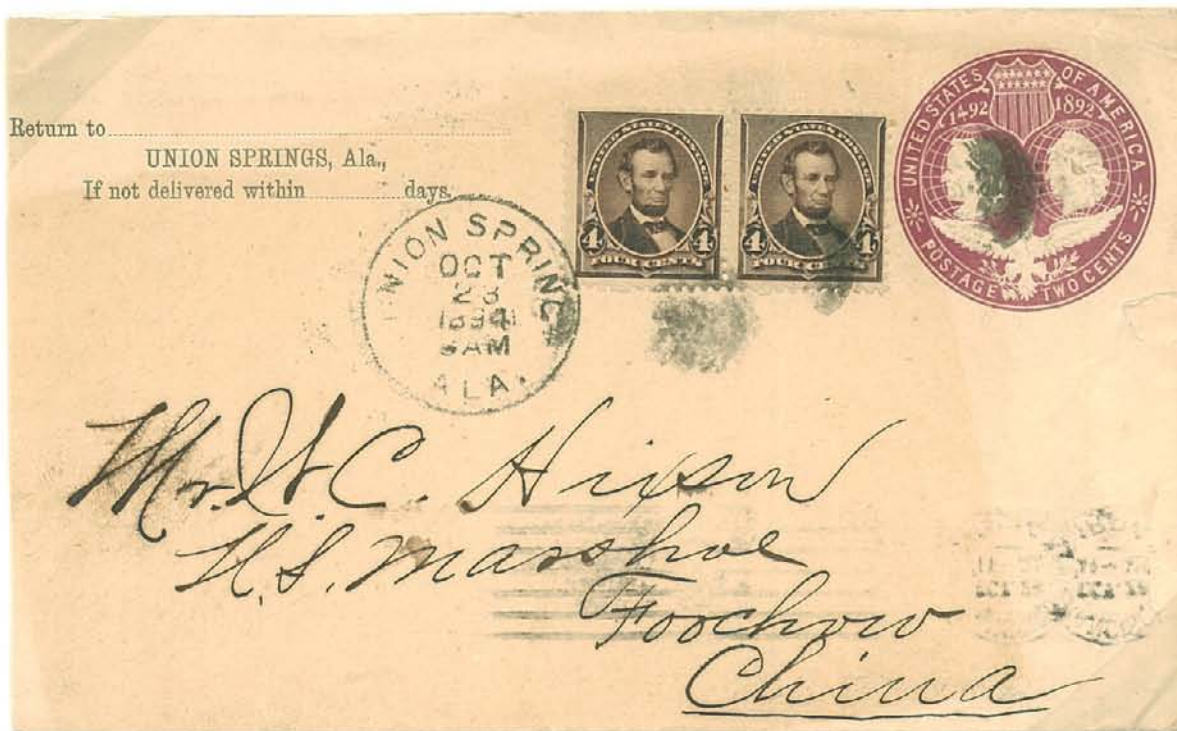 Return to
UNION SPRINGS, Ala.,
If not delivered within days.
UNION SPRING
OCT
23
1894
ALA.
UNITED STATES POSTAGE
4 4
FOUR CENTS
UNITED STATES POSTAGE
4 4
FOUR CENTS
UNITED STATES OF AMERICA
1492 1892
POSTAGE TWO CENTS
Mr. W. C. Hixson
U.S. Marshal
Foochow
China